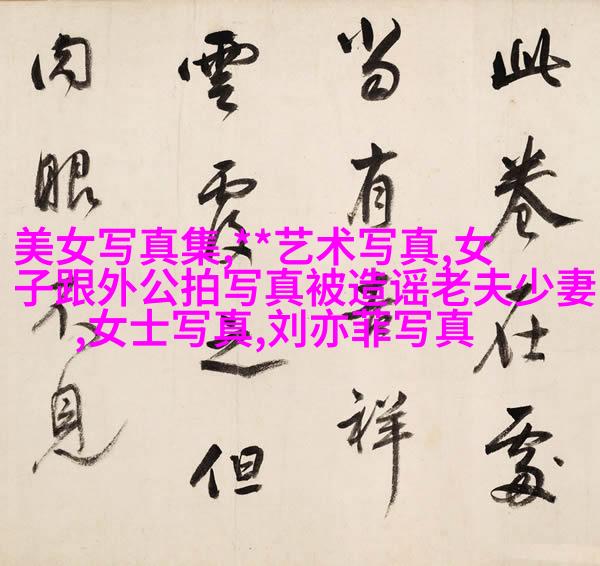 此卷在處
當有吉祥
雲覆之但
肉眼不見
美女写真集,**艺术写真,女
子跟外公拍写真被造谣老夫少妻
,女士写真,刘亦菲写真